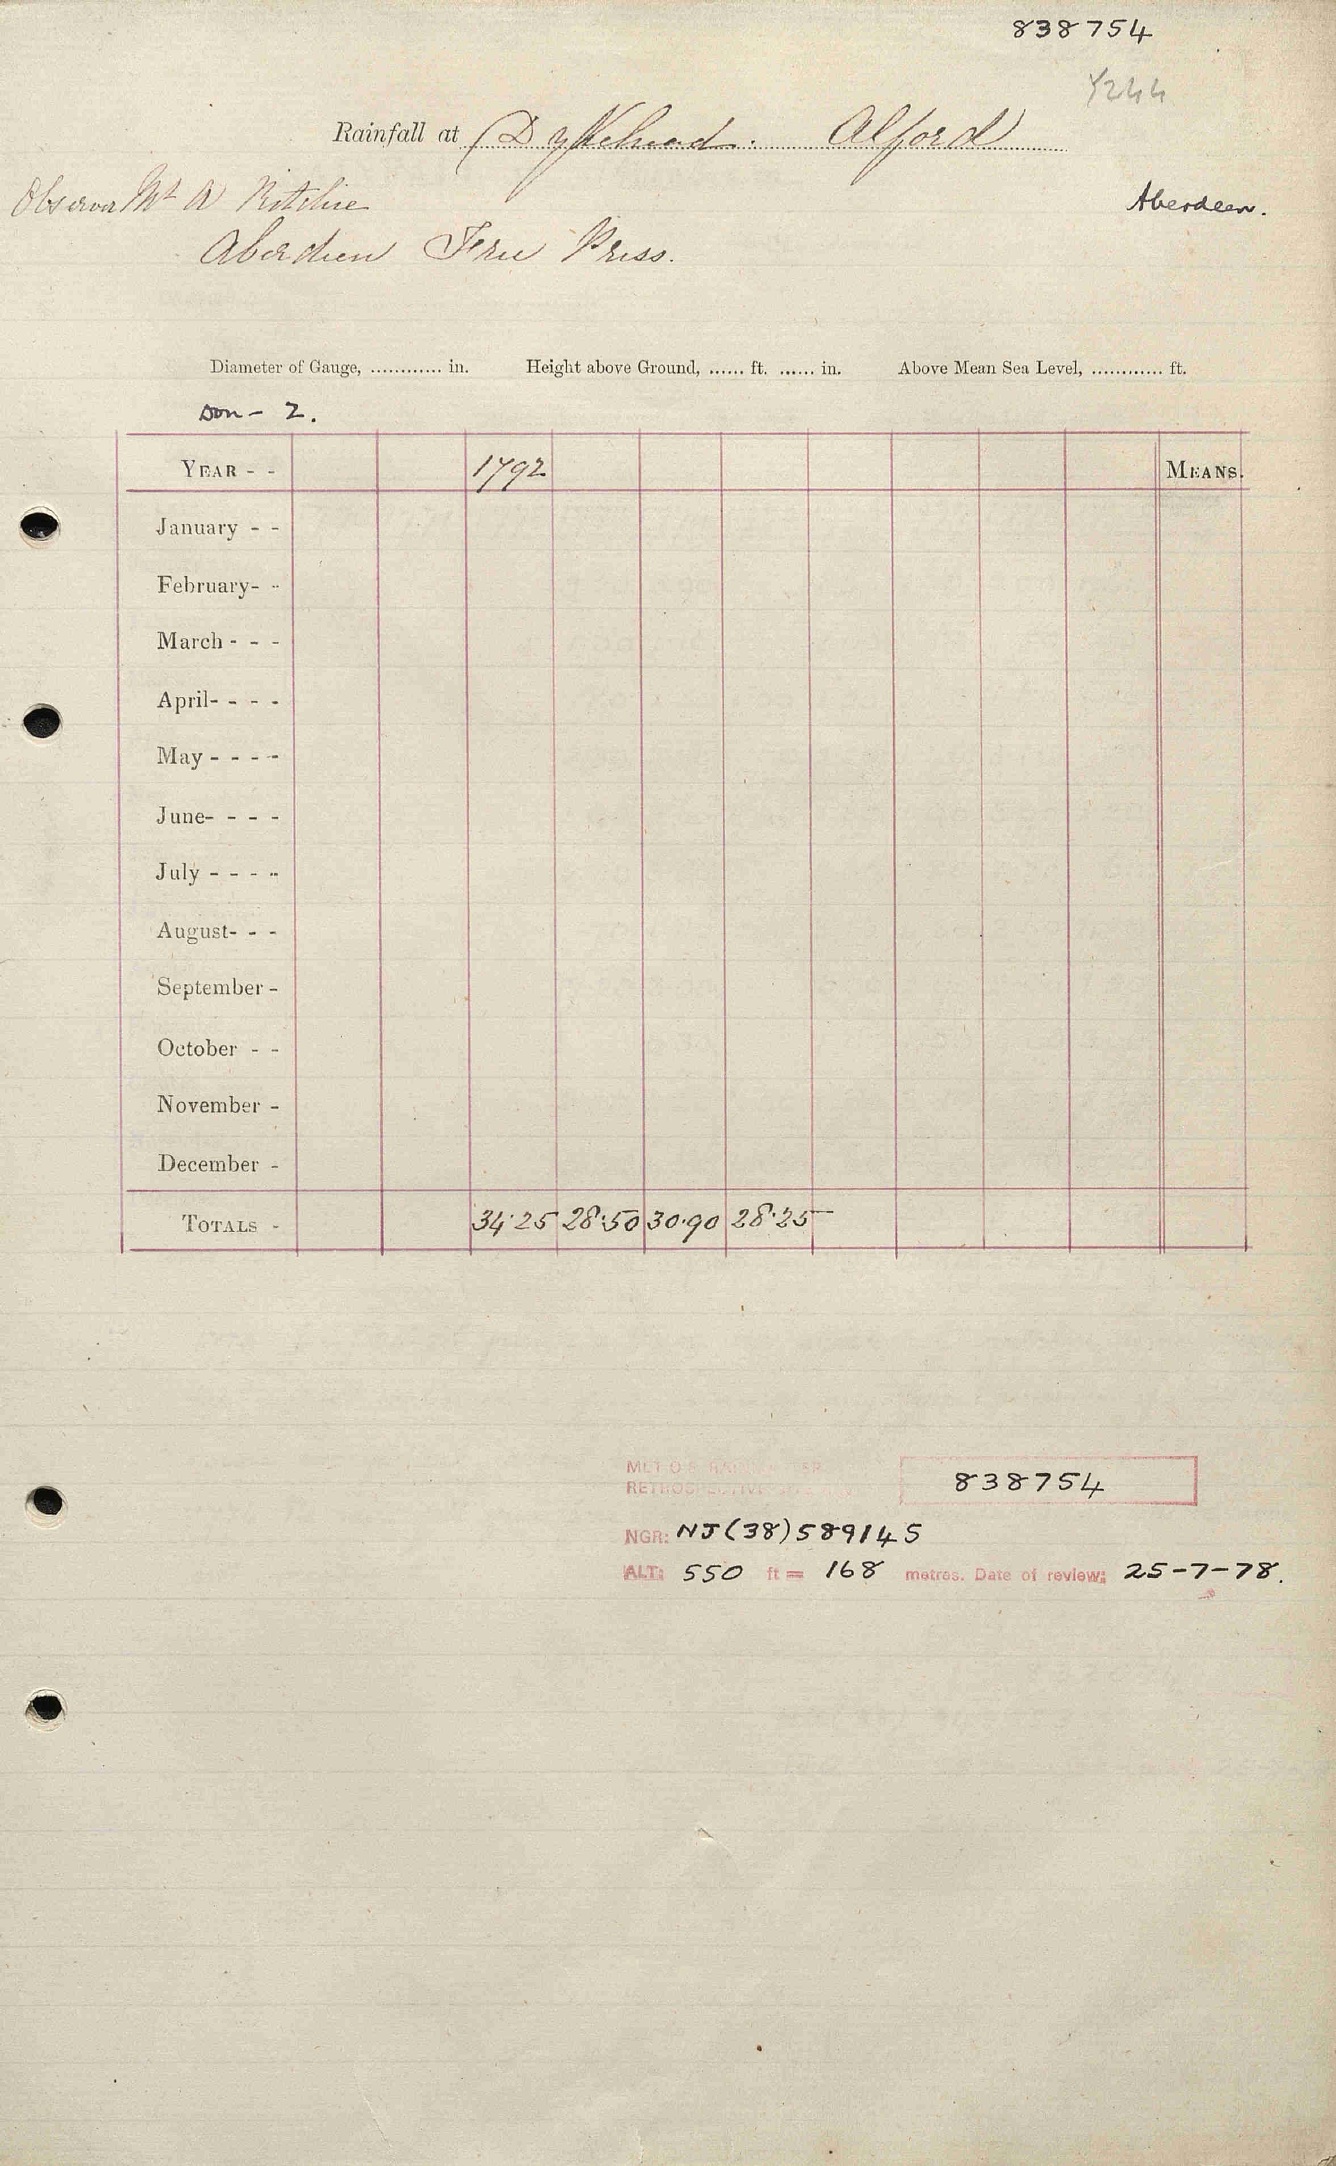 838754
Y244
Rainfall at Dykehead. Alford
Observer Mr A Ritchie
Aberdeen.
Aberdeen Free Press.
Diameter of Gauge, ............ in. Height above Ground, ...... ft. ...... in. Above Mean Sea Level, ............ ft.
Don - 2.
YEAR - - 1792 MEANS.
January - -
February - -
March - - -
April - - - -
May - - - -
June - - - -
July - - - -
August - - -
September -
October - -
November -
December -
TOTALS - 34.25 28.50 30.90 28.25
MET O 8
RETROSPECTIVE 838754
NGR: NJ(38)589145
ALT: 550 ft = 168 metres. Date of review: 25-7-78.